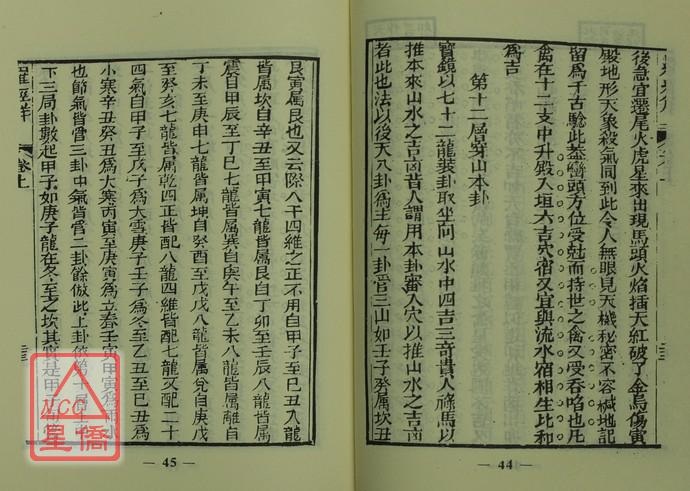 後急宜遷尾火虎星來出現馬頭火焰插天紅破了金烏傷寅
殿地形天象殺氣同到此令人無眼見天機秘密不容緘地記
留爲千古驗此葢巒頭方位受尅而持世之禽又受吞啗也凡
禽在十二支中升殿入垣六吉穴宿又宜與流水宿相生比和
爲吉
第十二層穿山本卦
寶鏡以七十二龍裝卦取坐向山水中四吉三奇貴人祿馬以
推本來山水之吉凶昔人謂用本卦審入穴以推山水之吉凶
者此也法以後天八卦爲主每一卦管三山如壬子癸屬坎丑
— 44 —
艮寅屬艮也又云除八干四維之正不用自甲子至巳丑八龍
皆屬坎自辛丑至甲寅七龍皆屬艮自丁卯至壬辰八龍皆屬
震自甲辰至丁巳七龍皆屬巽自庚午至乙未八龍皆屬離自
丁未至庚申七龍皆屬坤自癸酉至戊戌八龍皆屬兌自庚戌
至癸亥七龍皆屬乾四正皆配八龍四維皆配七龍又配二十
四氣自甲子至戊子爲大雪庚子壬子爲冬至乙丑至巳丑爲
小寒辛丑癸丑爲大寒丙寅至庚寅爲立春壬寅甲寅爲雨水
也節氣皆管三卦中氣皆管二卦餘倣此上卦依第十層
下三局卦數起甲子如庚子龍在冬至之坎其實是甲
羅經詳
卷上
— 45 —
NCC
星僑